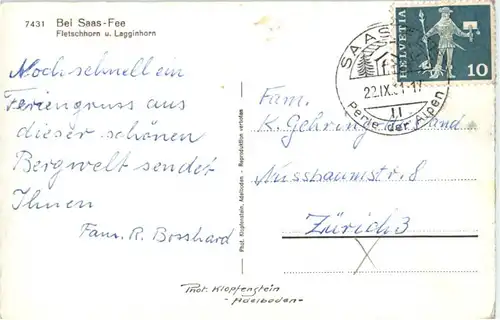 7431 Bei Saas-Fee
Fletschhorn u. Lagginhorn
Noch schnell ein
Feriengruss aus
dieser schönen
Bergwelt sendet
Ihnen
Fam. R. Bosshard
Phot. Klopfenstein, Adelboden - Reproduction verboten
SAAS
Perle der Alpen
HELVETIA
10
Fam.
K. Gehring
Nussbaumstr. 8
Zürich 3
Phot. Klopfenstein
- Adelboden -